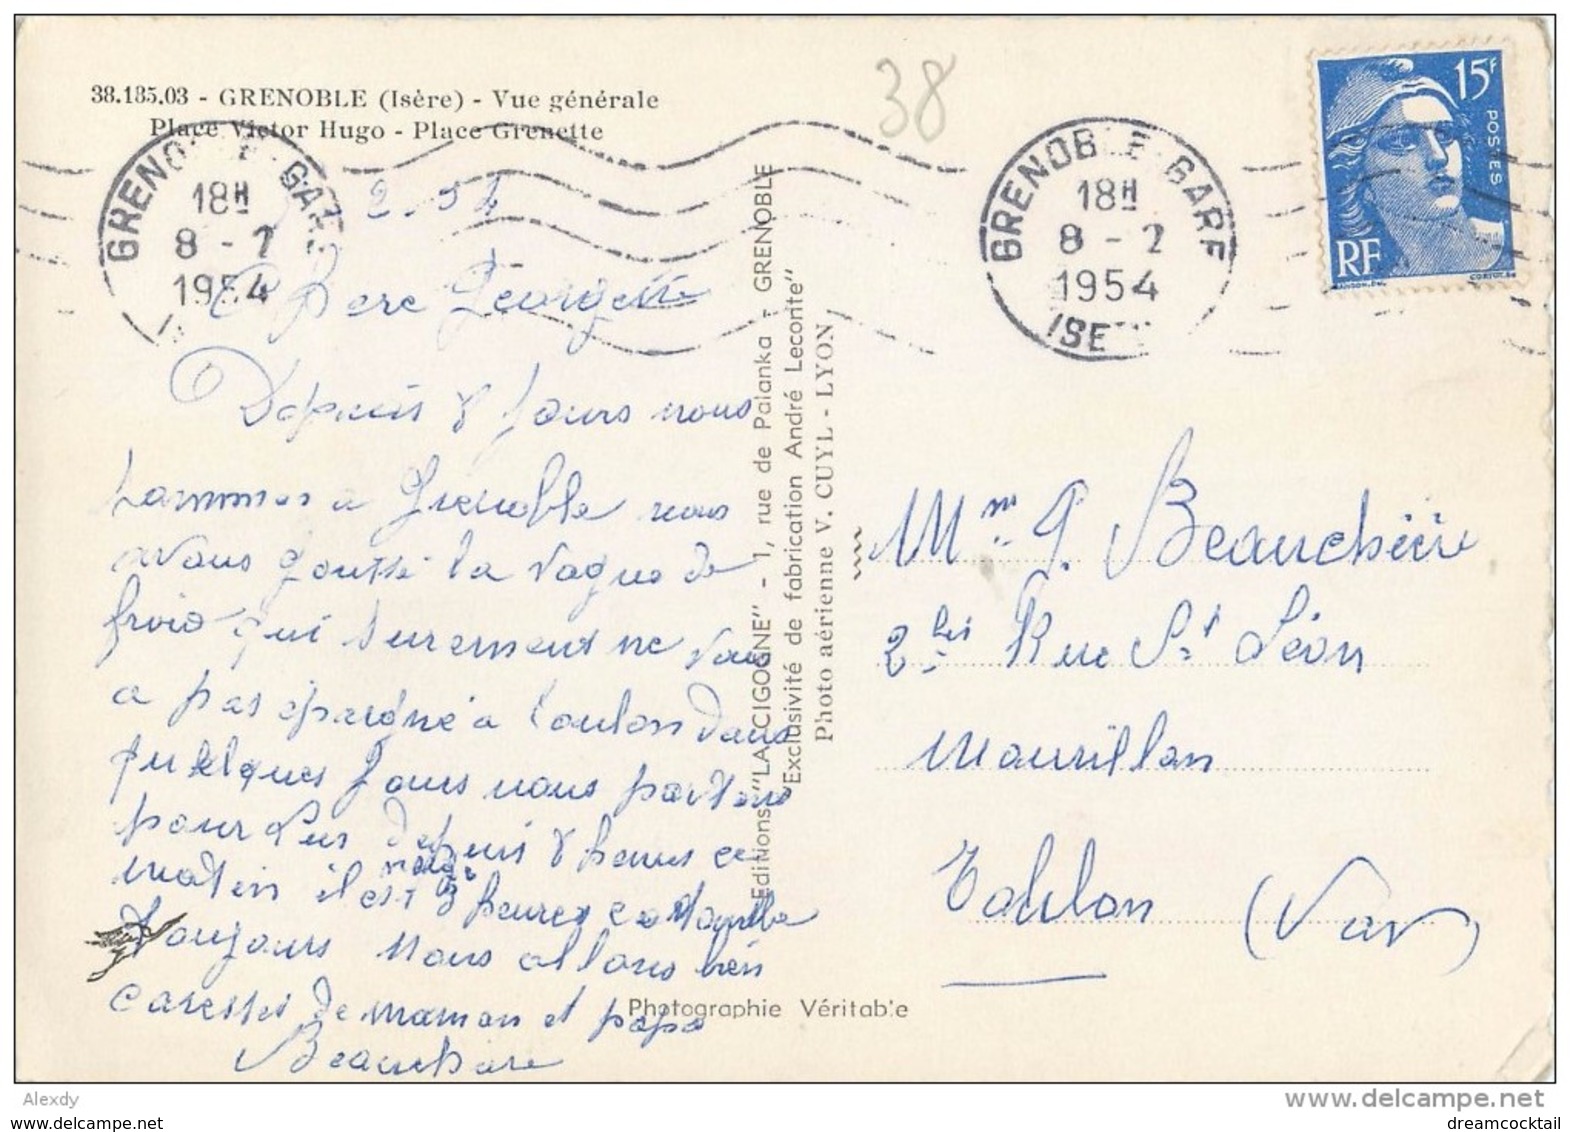 38.185.03 - GRENOBLE (Isère) - Vue générale
Place Victor Hugo - Place Grenette
38
15F
POSTES
RF
GRENOBLE GARE
18H
8 - 2
1954
GRENOBLE GARE
18H
8 - 2
1954
ISE
2. 54
Chere Georgette
Depuis 8 jours nous
sommes a Grenoble nous
avons goutté la vague de
froid qui surement ne vous
a pas épargné a Toulon dans
quelques jours nous partons
pour depuis 8 heures ce
matin il est neige 3 heures ca tombe
toujours nous allons bien
caresses de maman et papa
Beauchiere
Editions "LA CIGOGNE" - 1, rue de Palanka - GRENOBLE
"Exclusivité de fabrication André Leconte"
Photo aérienne V. CUYL - LYON
Photographie Véritable
Mme G. Beauchière
2 bis Rue St Léon
Mourillon
Toulon (Var)
Alexdy
www.delcampe.net
website: delcampe.net
dreamcocktail